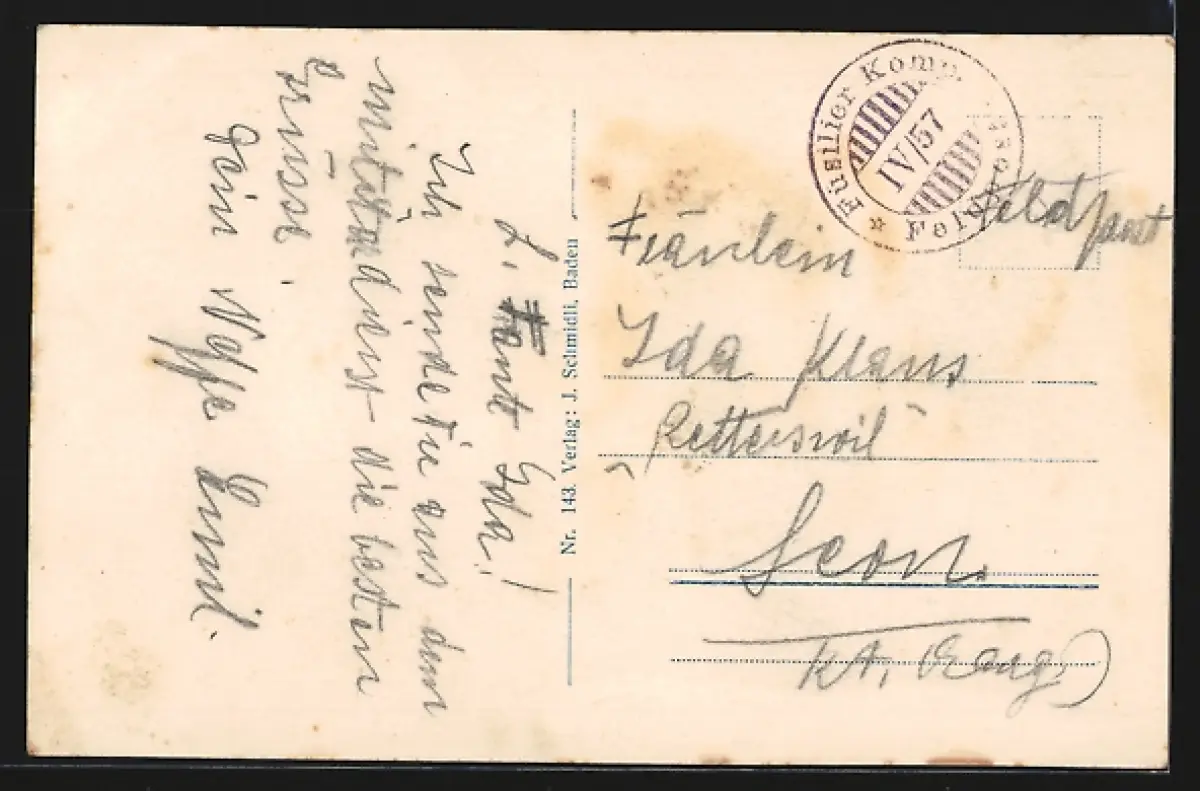 L. Tante Ida!
Ich sende Dir aus dem
Militärdienst die besten
Grüsse
Dein Neffe Emil.
Nr. 143. Verlag: J. Schmidli, Baden
Füsilier Komp.
IV/57
Feldpost
Feldpost
Fräulein
Ida Klaus
"Retterswil"
Seon.
Kt. Aarg.